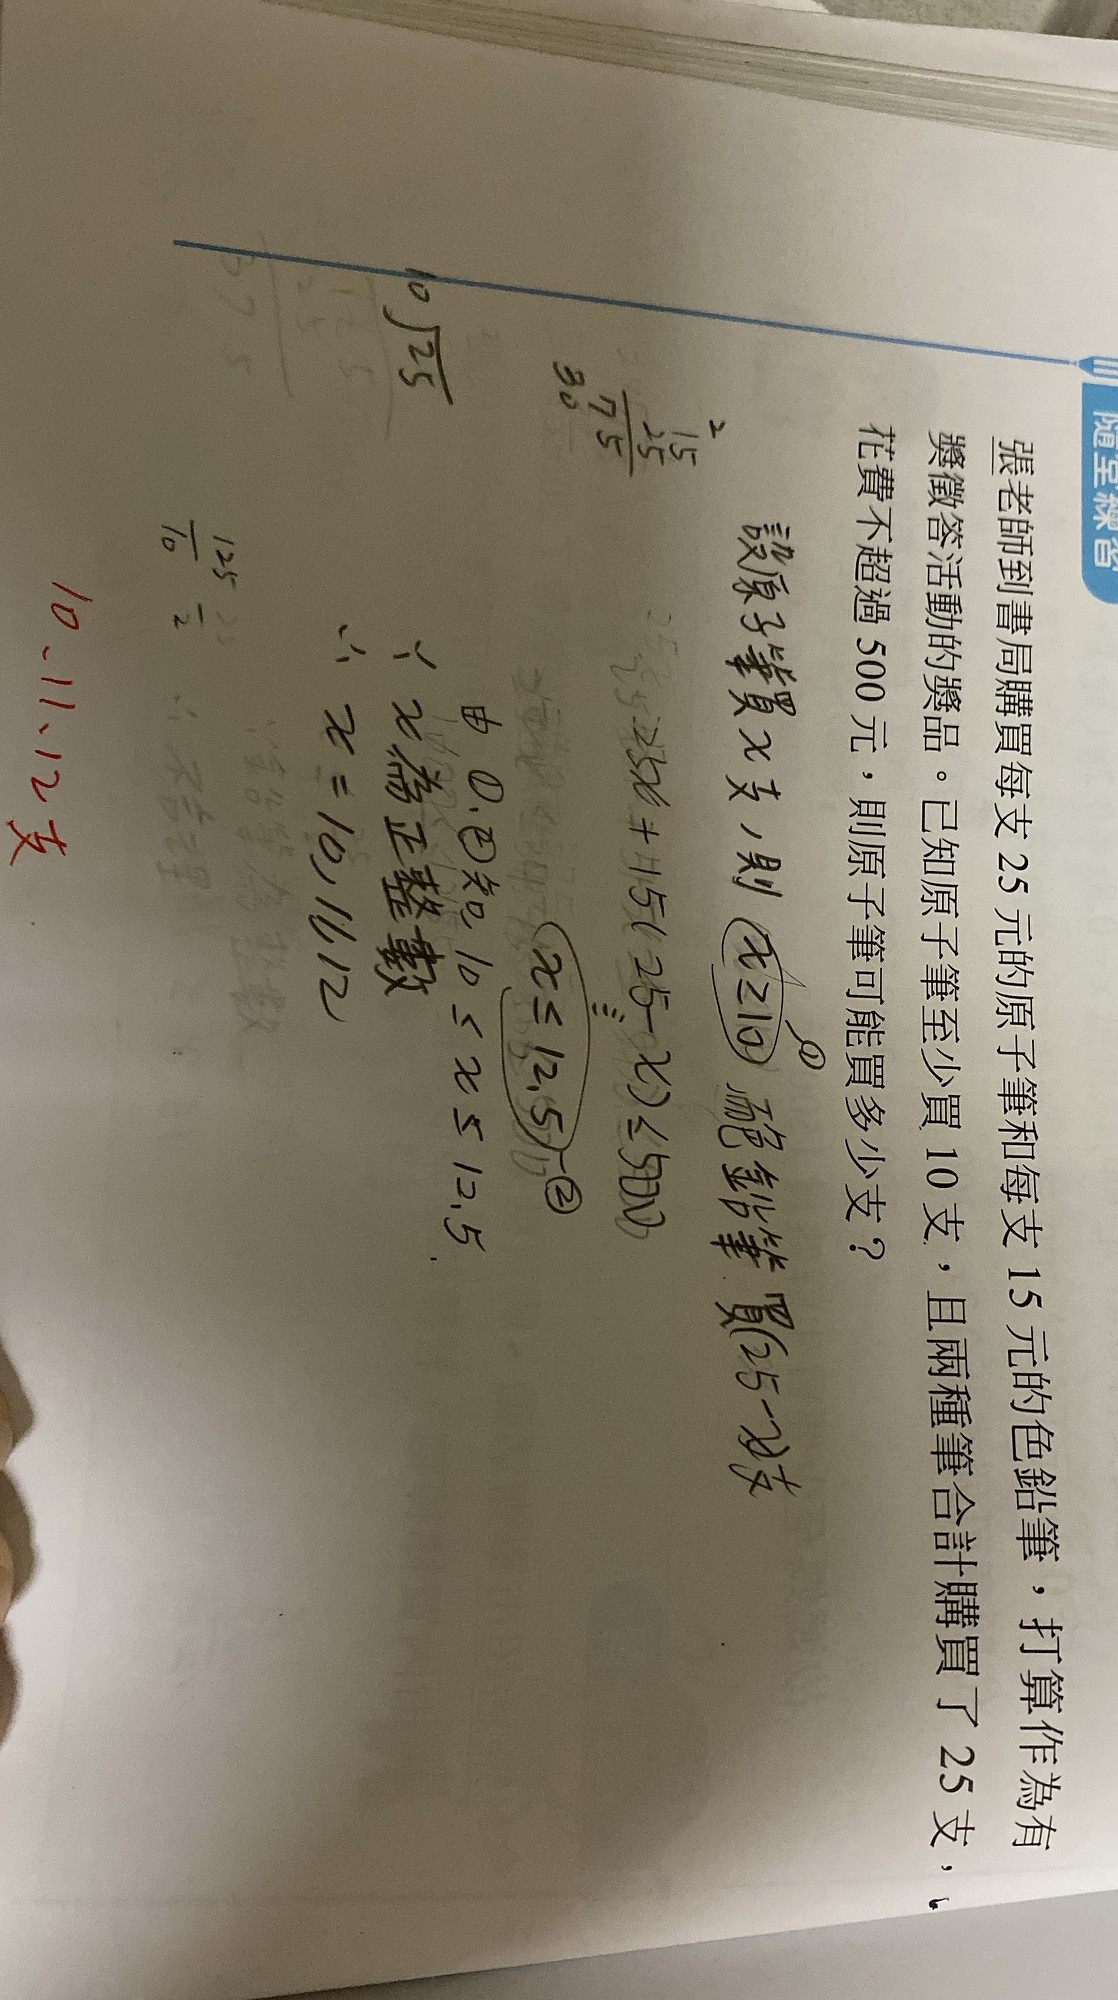 隨堂練習
張老師到書局購買每支 25 元的原子筆和每支 15 元的色鉛筆，打算作為有
獎徵答活動的獎品。已知原子筆至少買 10 支，且兩種筆合計購買了 25 支，
花費不超過 500 元，則原子筆可能買多少支？
設原子筆買x支，則 x≥10 ① 而色鉛筆買(25-x)支
2
15
25
75
30
25x+15(25-x)≤500
x≤12.5 -②
由①.②知 10≤x≤12.5
10√25
∵ x為正整數
∴ x=10,11,12
125
10
2
10、11、12支